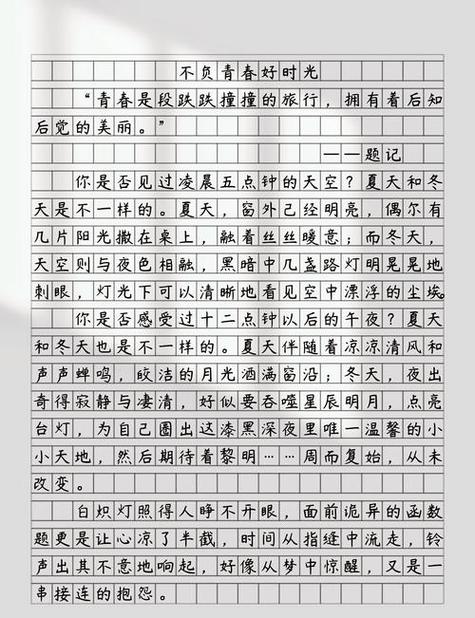 不负青春好时光
“青春是段跌跌撞撞的旅行，拥有着后知
后觉的美丽。”
——题记
你是否见过凌晨五点钟的天空？夏天和冬
天是不一样的。夏天，窗外已经明亮，偶尔有
几片阳光撒在桌上，融着丝丝暖意；而冬天，
天空则与夜色相融，黑暗中几盏路灯明晃晃地
刺眼，灯光下可以清晰地看见空中漂浮的尘埃。
你是否感受过十二点钟以后的午夜？夏天
和冬天也是不一样的。夏天伴随着凉凉清风和
声声蝉鸣，皎洁的月光洒满窗沿；冬天，夜出
奇得寂静与凄清，好似要吞噬星辰明月，点亮
台灯，为自己圈出这漆黑深夜里唯一温馨的小
小天地，然后期待着黎明……周而复始，从未
改变。
白炽灯照得人睁不开眼，面前诡异的函数
题更是让心凉了半截，时间从指缝中流走，铃
声出其不意地响起，好像从梦中惊醒，又是一
串接连的抱怨。